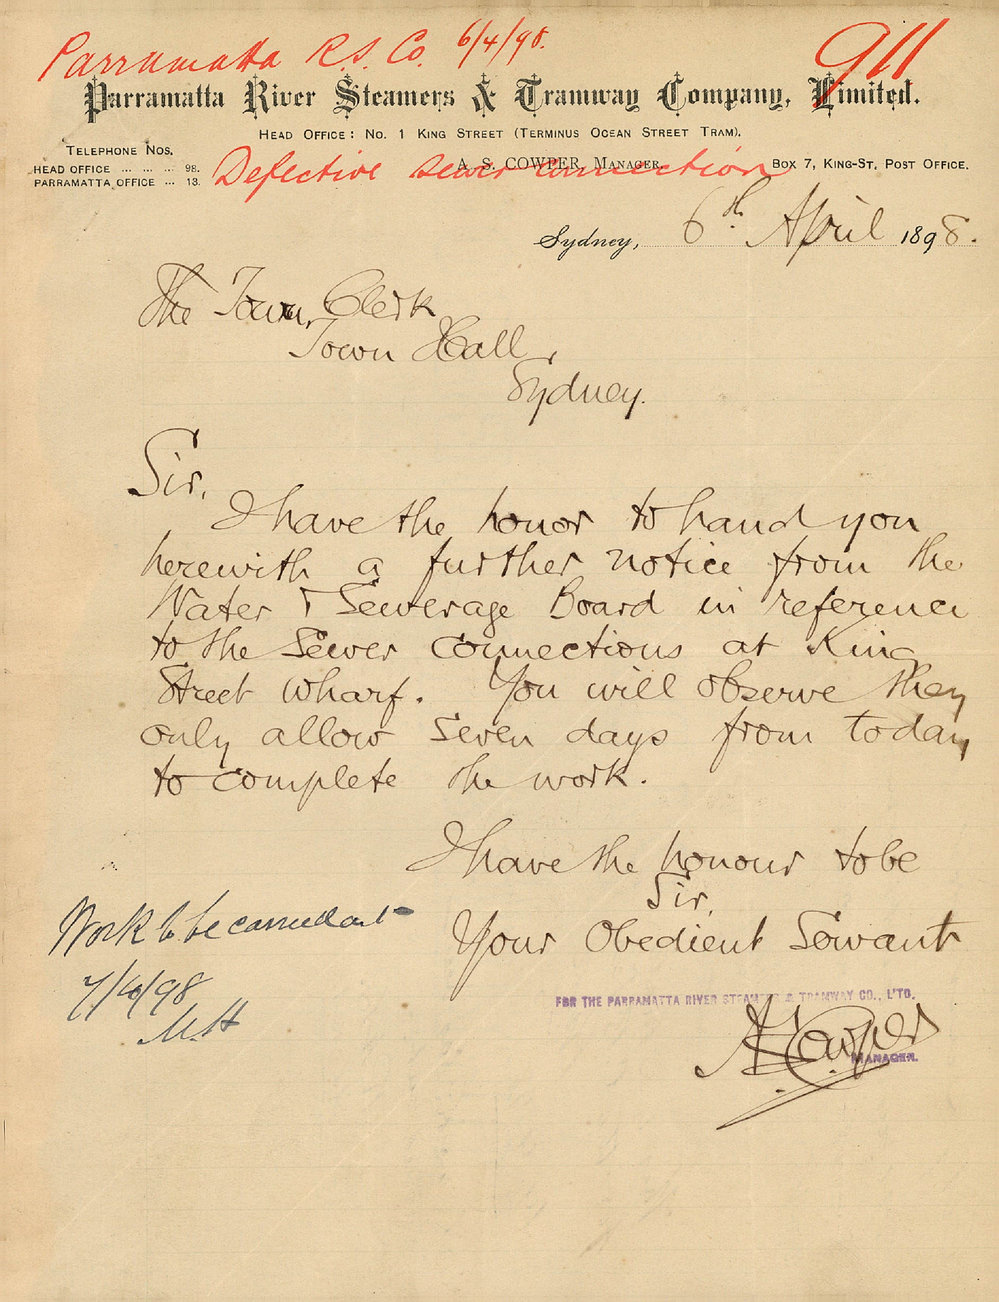 Parramatta R.S. Co. 6/4/98.
911
Parramatta River Steamers & Tramway Company, Limited.
HEAD OFFICE: No. 1 KING STREET (TERMINUS OCEAN STREET TRAM).
TELEPHONE NOS.
HEAD OFFICE ... ... ... 98.
PARRAMATTA OFFICE ... 13.
A. S. COWPER, MANAGER.
BOX 7, KING-ST. POST OFFICE.
Defective sewer connection
Sydney, 6th April 1898.
The Town Clerk
Town Hall,
Sydney.
Sir,
I have the honor to hand you
herewith a further notice from the
Water & Sewerage Board in reference
to the Sewer connections at King
Street Wharf. You will observe they
only allow seven days from today
to complete the work.
I have the honour to be
Sir,
Your Obedient Servant
Work to be carried out
7/4/98
FOR THE PARRAMATTA RIVER STEAMERS & TRAMWAY CO., L'TD.
A S Cowper
MANAGER.